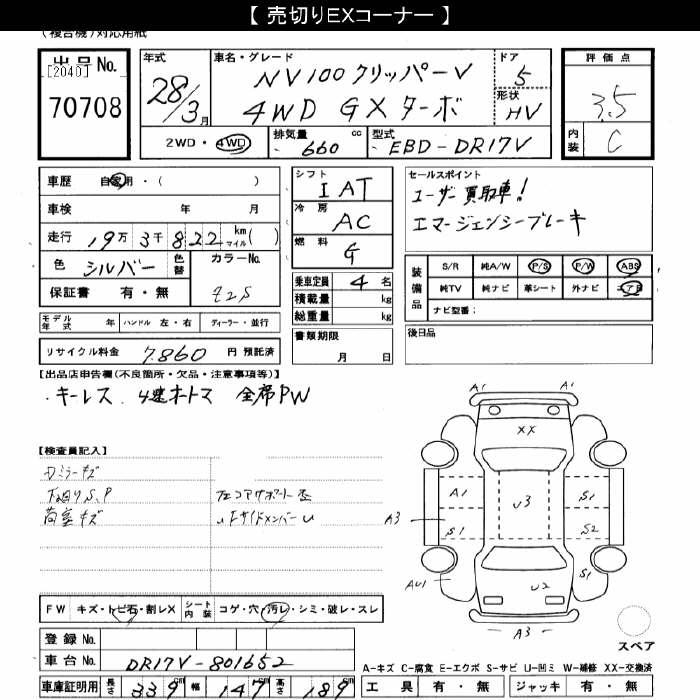 【 売切りEXコーナー 】
(複合機)対応用紙
出品No. [2040]
70708
年式 28/3月
車名・グレード NV100クリッパーV
4WD GXターボ
ドア 5
形状 HV
評価点 3.5
内装 C
2WD・4WD
排気量 660 cc
型式 EBD-DR17V
車歴 自家用・( )
車検 年 月
走行 19万3千822 km マイル ( )
色 シルバー 色替 カラーNo. Z2S
保証書 有・無
シフト IAT
冷房 AC
燃料 G
乗車定員 4 名
積載量 kg
総重量 kg
セールスポイント
ユーザー買取車!
エマージェンシーブレーキ
装備品 S/R 純A/W P/S P/W ABS
純TV 純ナビ 革シート 外ナビ エアB
ナビ型番:
モデル年式 年 ハンドル 左・右 ディーラー・並行
書類期限 月 日
後日品
リサイクル料金 7,860 円 預託済
【出品店申告欄(不良箇所・欠品・注意事項等)】
・キーレス 4速オートマ 全席PW
【検査員記入】
下回りS、P
荷室キズ
左コアサポート歪
〃FサイドメンバーU
A1 A1
XX
A1 U3 S1
A3 S1 S2
AU1 U2 S1
A3
スペア
FW キズ・トビ石・割レX シート内装 コゲ・穴・汚レ・シミ・破レ・スレ
登録No.
車台No. DR17V-801652
A-キズ C-腐食 E-エクボ S-サビ U-凹ミ W-補修 XX-交換済
車庫証明用 長さ 339 cm 幅 147 cm 高さ 189 cm
工具 有・無 ジャッキ 有・無